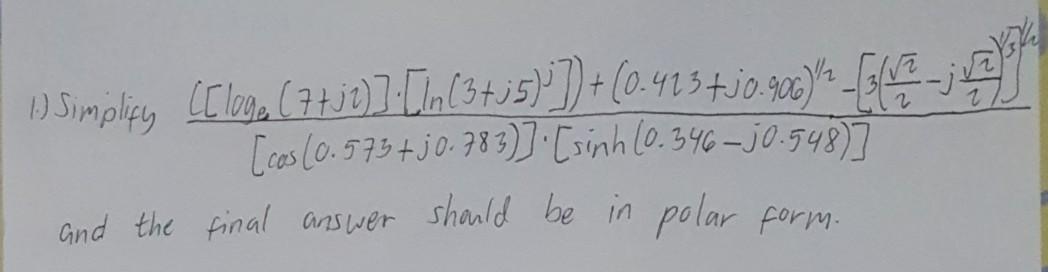 1.) Simplify ([log_e(7+j2)]·[ln(3+j5)^j])+(0.423+j0.906)^1/2-[3(√2/2-j√2/2)^1/3]^1/2
[cos(0.573+j0.783)]·[sinh(0.346-j0.548)]
and the final answer should be in polar form.